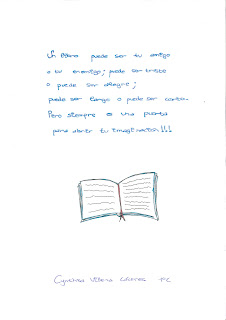 Un libro puede ser tu amigo
o tu enemigo; puede ser triste
o puede ser alegre;
puede ser largo o puede ser corto.
Pero siempre es una puerta
para abrir tu imaginación!!!
Cynthia